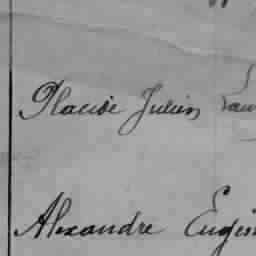 Placide Julien
Alexandre